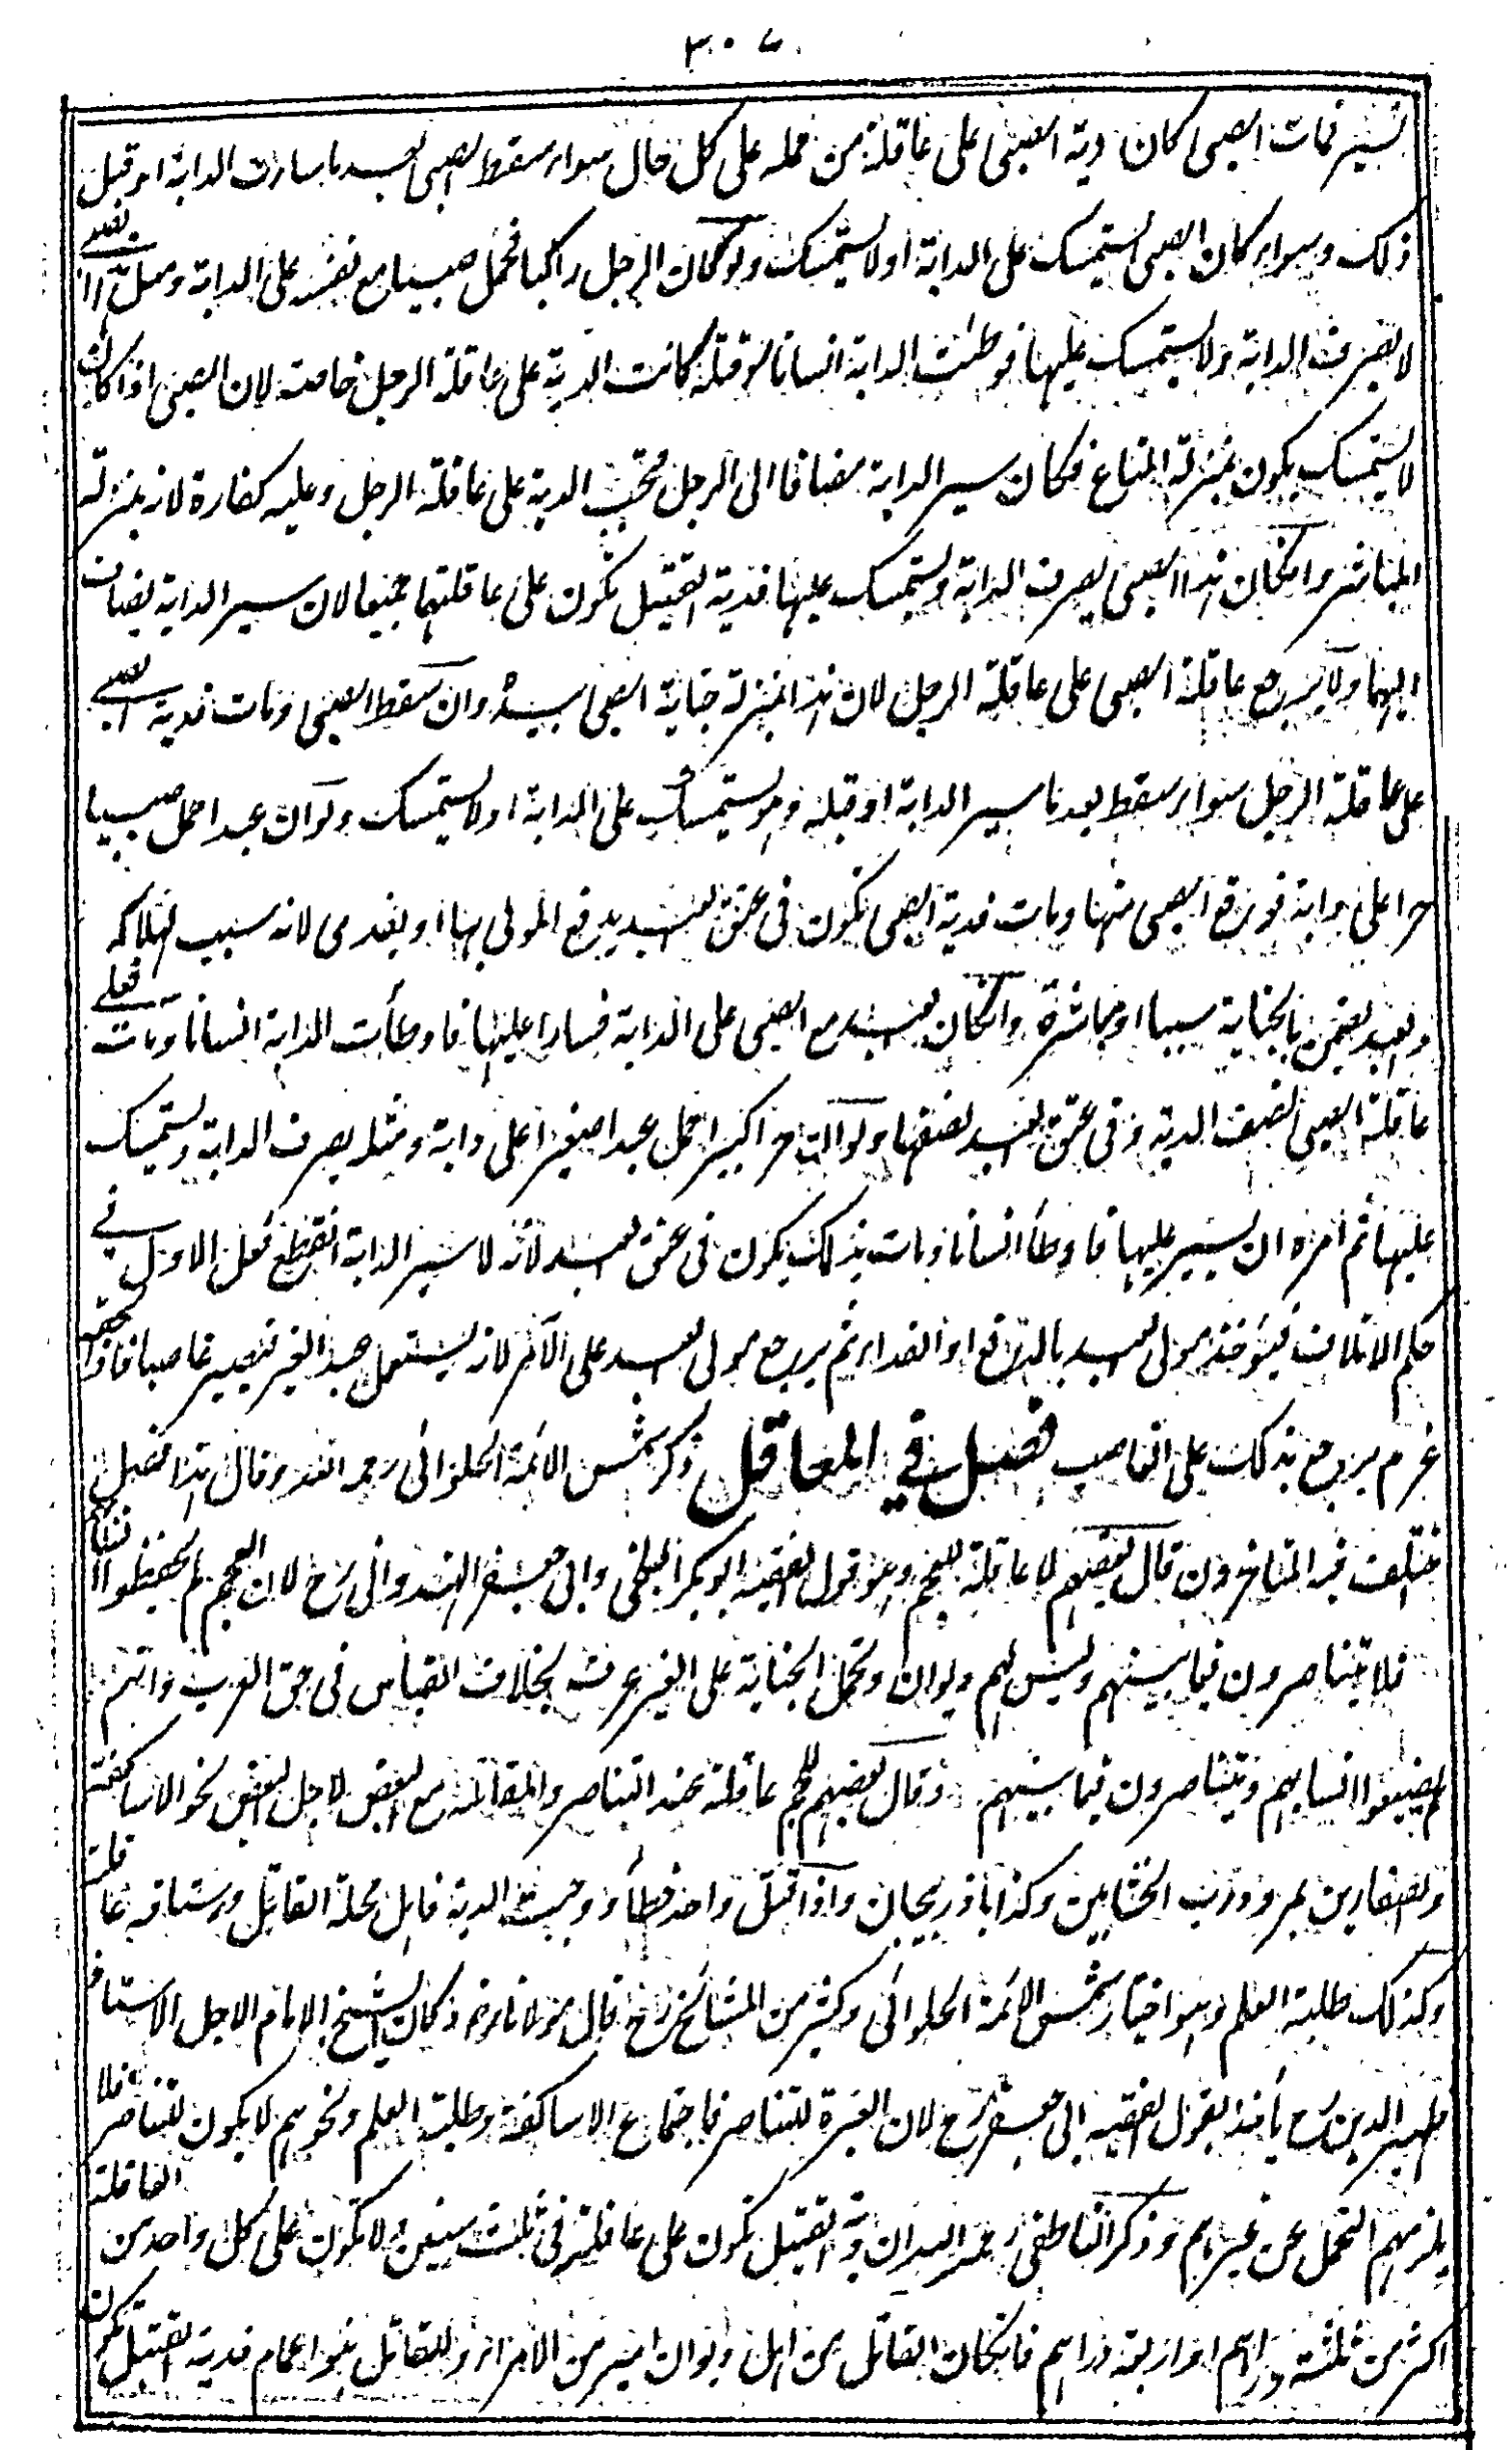 ٣٠٧
تسير فمات الصبى كان دية الصبى على عاقلة من حمله على كل حال سواء سقط الصبى بعد ما سارت الدابة او قبل
ذلك وسواء كان الصبى يستمسك على الدابة او لا يستمسك ولو كان الرجل راكبا فحمل صبيا مع نفسه على الدابة ومثل هذا الصبى
لا يصرف الدابة ولا يستمسك عليها فوطئت الدابة انسانا فقتله كانت الدية على عاقلة الرجل خاصة لان الصبى اذا كان
لا يستمسك يكون بمنزلة المتاع فكان سير الدابة مضافا الى الرجل فتجب الدية على عاقلة الرجل وعليه كفارة لانه بمنزلة
المباشر وان كان هذا الصبى يصرف الدابة ويستمسك عليها فدية القتيل تكون على عاقلتهما جميعا لان سير الدابة يضاف
اليهما ولا يرجع عاقلة الصبى على عاقلة الرجل لان هذا بمنزلة جناية الصبى بيده وان سقط الصبى ومات فدية الصبى
على عاقلة الرجل سواء سقط بعد ما سير الدابة او قبله وهو يستمسك على الدابة او لا يستمسك ولو ان عبدا حمل صبيا
حرا على دابة فوقع الصبى منها ومات فدية الصبى تكون فى عنق العبد يدفع المولى بها او يفدى لانه سبب لهلاكه
والعبد يضمن بالجناية سببا او مباشرة وان كان العبد مع الصبى على الدابة فسارا عليها فاوطأت الدابة انسانا ومات فعلى
عاقلة الصبى نصف الدية وفى عنق العبد نصفها ولو ان حرا كبيرا حمل عبدا صغيرا على دابة ومثله يصرف الدابة ويستمسك
عليها ثم امره ان يسير عليها فاوطأ انسانا ومات بذلك يكون فى عنق العبد لانه لا سير الدابة انقطع فعل الاول فى
حكم الاتلاف فيؤخذ مولى العبد بالدفع او الفداء ثم يرجع مولى العبد على الآمر لانه يستعمل عبد الغير فيصير غاصبا فاذا لحقه
غرم يرجع بذلك على الغاصب فصل في المعاقل ذكر شمس الائمة الحلوائى رحمه الله وقال هذا فصل
اختلف فيه المتاخرون قال بعضهم لا عاقلة للعجم وهو قول الفقيه ابو بكر البلخى وابى جعفر الهندوانى رح لان العجم لم يحفظوا انسابهم
فلا يتناصرون فيما بينهم وليس لهم ديوان وتحمل الجناية على الغير عرف بخلاف القياس فى حق العرب وانهم
لم يضيعوا انسابهم ويتناصرون فيما بينهم وقال بعضهم للعجم عاقلة عند التناصر والمقاتلة مع البعض لاجل البعض نحو الاساكفة
والصفارين بمرو ودرب الخشابين وكذا باذربيجان واذا قتل واحد خطأ ووجبت الدية فاهل محلة القاتل ورستاقه عاقلته
وكذلك طلبة العلم وهو اختيار شمس الائمة الحلوائى وكثير من المشائخ رح قال مولانا رض وكان الشيخ الامام الاجل الاستاذ
ظهير الدين رح يأخذ بقول الفقيه ابى جعفر رح لان العبرة للتناصر فاجتماع الاساكفة وطلبة العلم ونحوهم لا يكون للتناصر فلا
يلزمهم التحمل عن غيرهم وذكر الناطفى رحمه الله ان دية القتيل تكون على عاقلته فى ثلث سنين ولا تكون على كل واحد من العاقلة
اكثر من ثلثة دراهم او اربعة دراهم فان كان القاتل من اهل ديوان امير من الامراء وللقاتل بنو اعمام فدية القتيل تكون